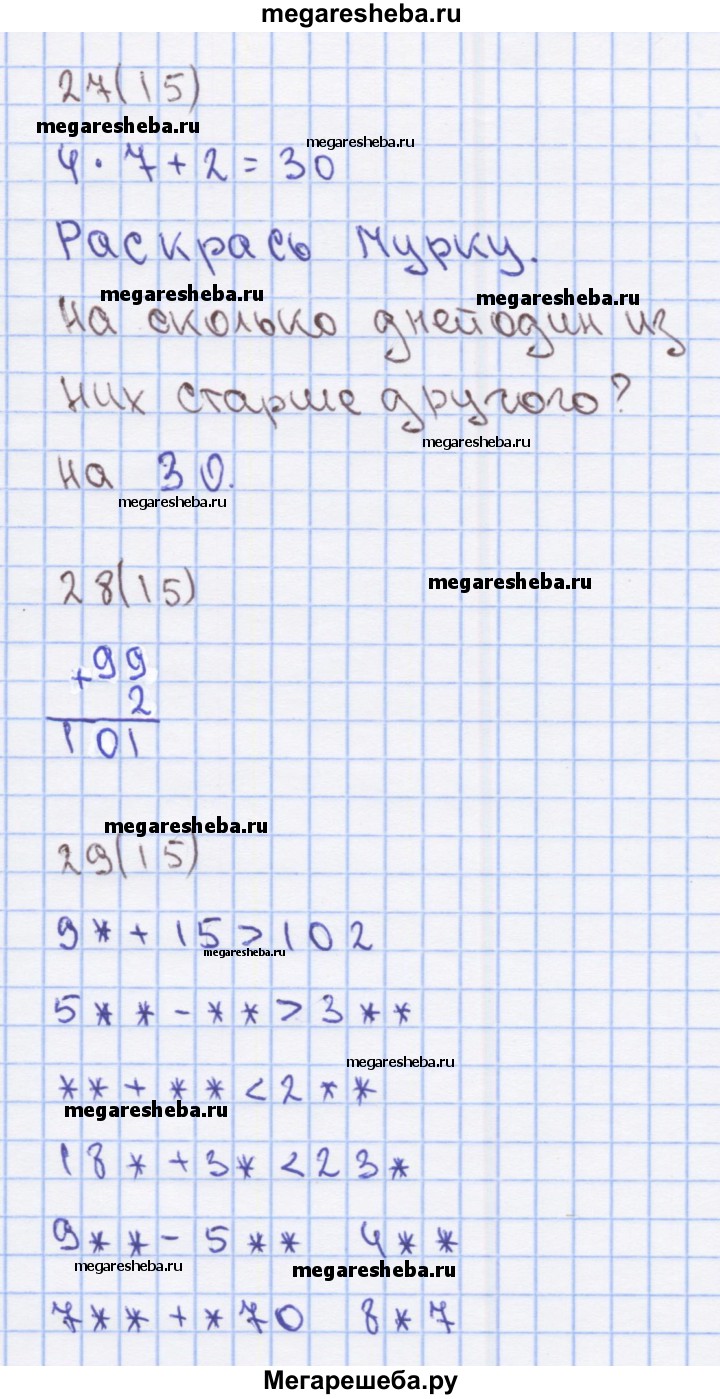 megaresheba.ru
27(15)
megaresheba.ru
megaresheba.ru
4·7+2=30
Раскрась Мурку.
megaresheba.ru
megaresheba.ru
На сколько дней один из
них старше другого?
megaresheba.ru
на 30.
megaresheba.ru
28(15)
megaresheba.ru
+99
2
101
megaresheba.ru
29(15)
9*+15>102
megaresheba.ru
5**-**>3**
megaresheba.ru
**+**<2**
megaresheba.ru
18*+3*<23*
9**-5** 4**
megaresheba.ru
megaresheba.ru
7**+*70 8*7
Мегарешеба.ру